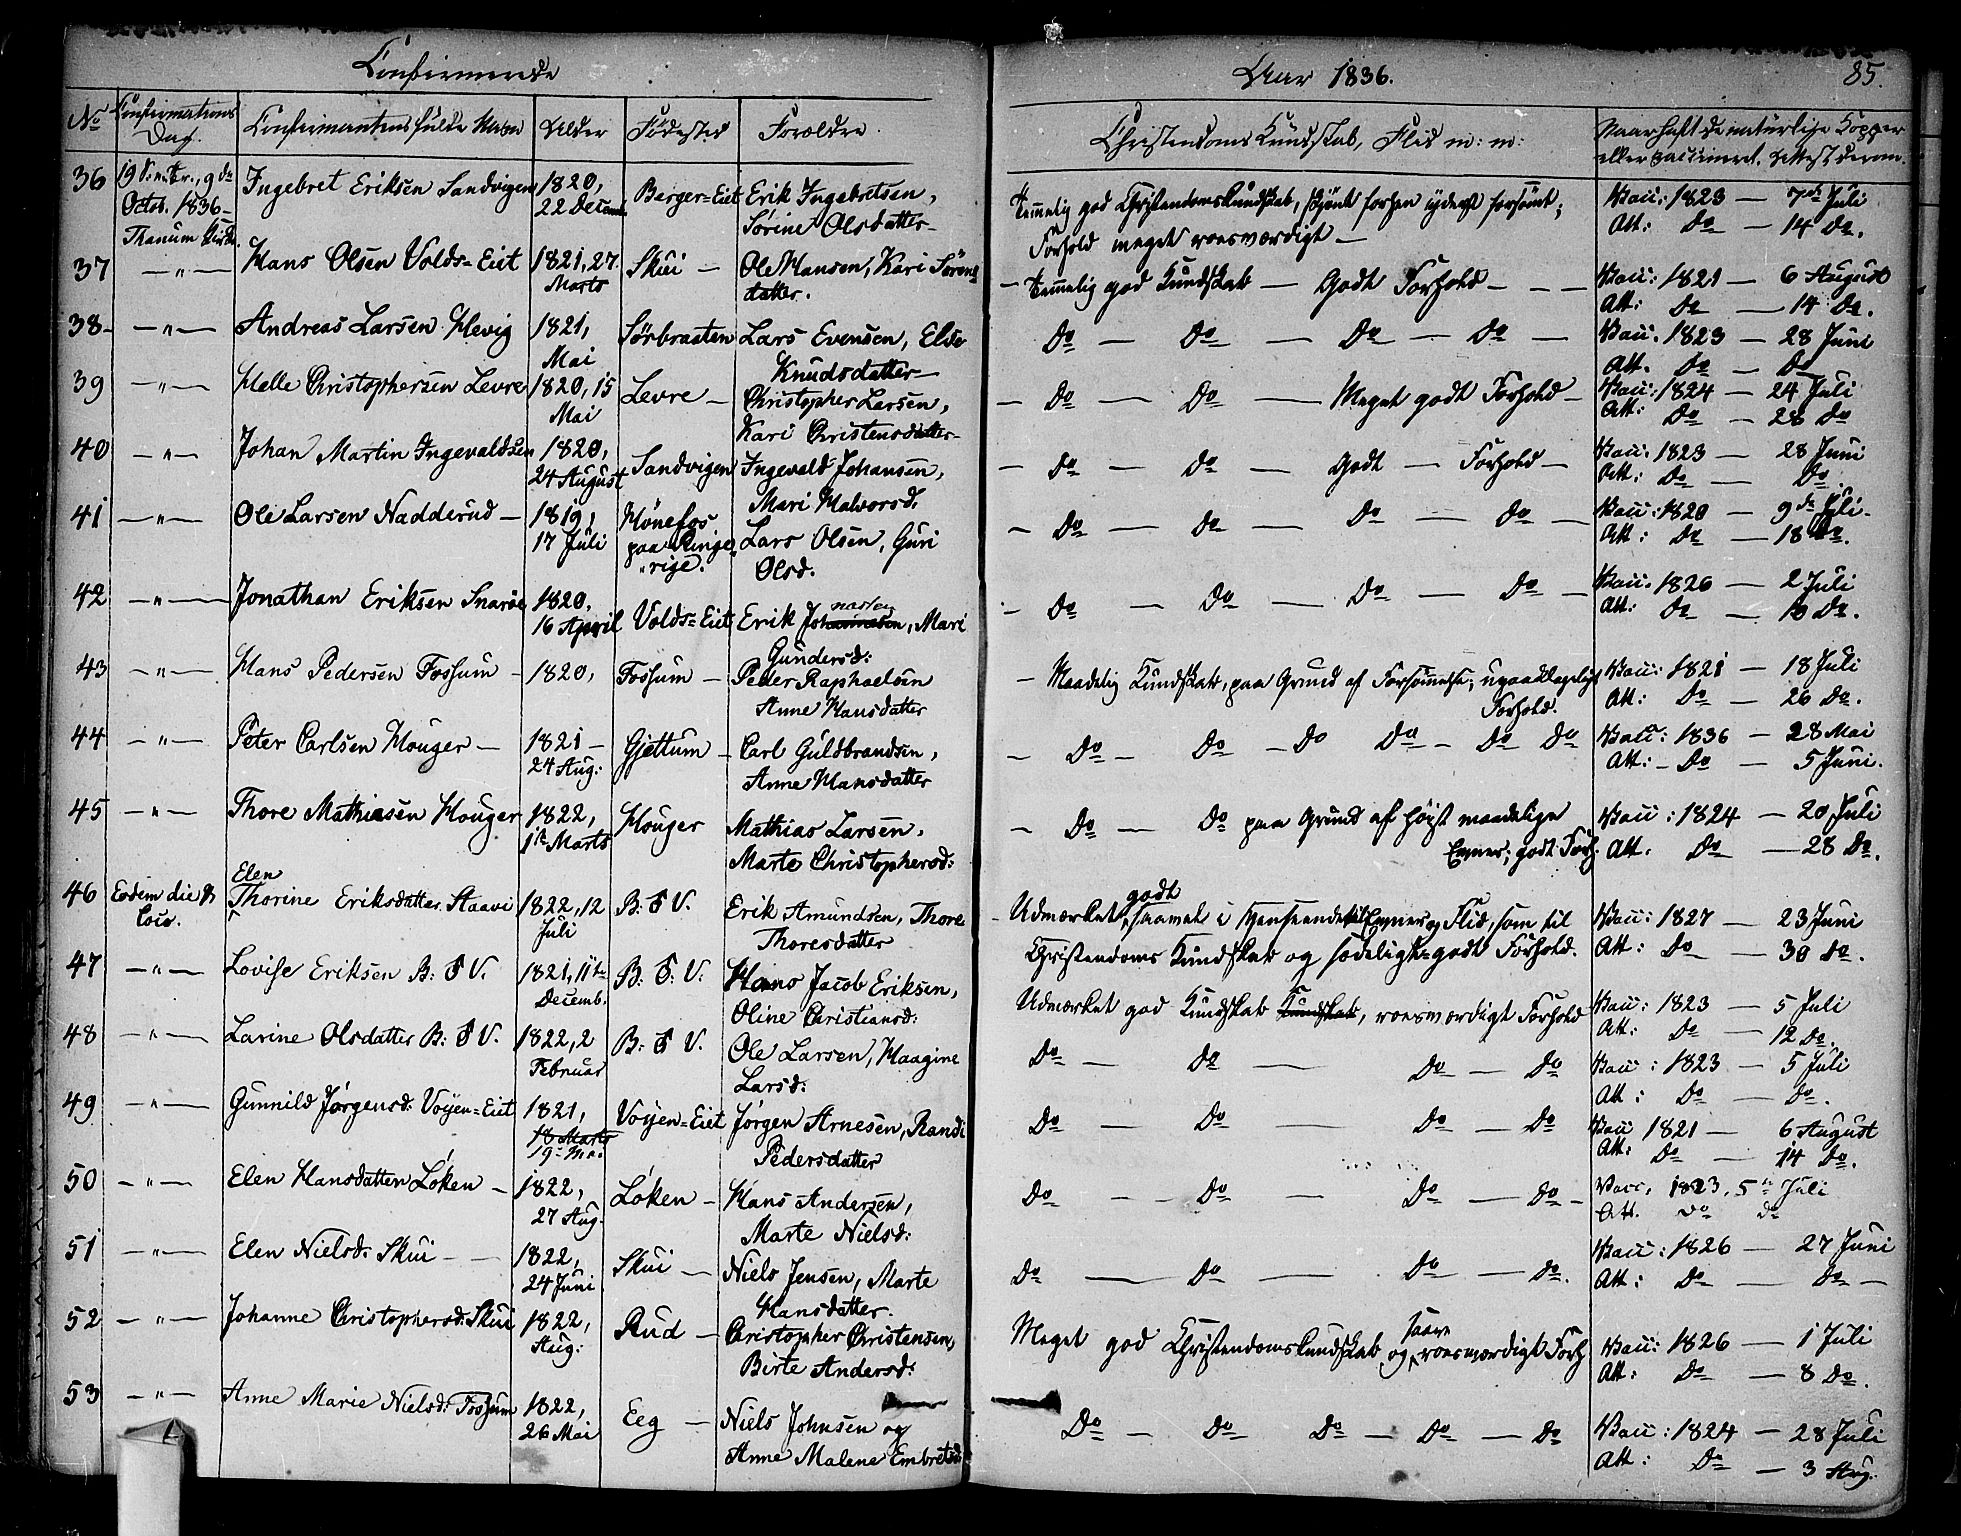 Confirmerede
Aar 1836.
85.
No
Confirmations Dag.
Confirmantens fulde Navn
Alder
Födested
Forældre
Christendoms Kundskab, Flid m: m:
Naar haft de naturlige Kopper eller vaccineret. Attest derom.
36 19 S. n. Tr., 9de Octob. 1836 – Thanum Kirke. Ingebret Eriksen Sandvigen 1820, 22 Decemb. Berger=Eiet Erik Ingebretsen, Sörine Olsdatter –
Temmelig god Christendomskundskab, skjönt forhen yderst forsömt; Forhold meget roesværdigt –
Vacc: 1823 — 7de Juli
Att: Do — 14 Do.
37 — " — Hans Olsen Volds=Eiet 1821, 27. Marts Skui — Ole Hansen, Kari Sörensdatter.
– Temmelig god Kundskab — Godt Forhold — — —
Vacc: 1821 — 6 August
Att: Do — 14 Do.
38 – — " — Andreas Larsen Hevig 1821, Mai Sörbraaten Lars Evensen, Else Knudsdatter —
Do — Do — Do — Do —
Vacc. 1823 — 28 Juni
Att. Do — Do
39 — " — Helle Christophersen Levre 1820, 15 Mai Levre — Christopher Larsen, Kari Christensdatter –
– Do — Do — Meget godt Forhold –
Vacc: 1824 — 24 Juli
Att: Do — 28 Do
40 — " — Johan Martin Ingevaldsen 1820, 24 August Sandvigen Ingevald Johansen, Mari Halvorsd.
– Do — Do — Godt — Forhold –
Vacc. 1823 — 28 Juni
Att: Do — Do.
41 — " — Ole Larsen Nadderud — 1819, 17 Juli Hönefos paa Ringerige. Lars Olsen, Guri Olsd.
– Do — Do — Do — Do –
Vacc: 1820 — 9de Juli.
Att: Do — 18 Do.
42 — " — Jonathan Eriksen Snaröe 1820, 16 April Volds=Eiet Erik Johannesen, Mari Gundersd:
– Do — Do — Do — Do –
Vacc. 1826 — 2 Juli
Att: Do — 10 Do.
43 — " — Hans Pedersen Fossum – 1820, Fossum — Peder Raphaelsen Anne Hansdatter
– Maadelig Kundskab, paa Grund af Forsömmelse; upaaklageligt Forhold.
Vacc: 1821 — 18 Juli
Att: Do — 26 Do.
44 — " — Peter Carlsen Houger — 1821 – 24 Aug: Gjettum — Carl Guldbrandsen, Anne Hansdatter
– Do — Do – Do Do – Do Do
Vacc: 1836 — 28 Mai
Att: – Do — 5 Juni.
45 — " — Thore Mathiasen Houger 1822, 1ste Marts Houger Mathias Larsen, Marte Christophersd:
– Do — Do paa Grund af höist maadelige Evner; godt Forh
Vacc: 1824 — 20 Juli
Att. Do — 28 Do.
46 Eodem die & loco. Elen Thorine Eriksdatter Staavi 1822, 12 Juli B: S V. Erik Amundsen, Thore Thoresdatter
– Udmærket godt, saavel i Henseende til Evner og Flid, som til Christendoms Kundskab og sædeligt=godt Forhold.
Vacc: 1827 — 23 Juni
Att: Do — 30 Do.
47 — " — Lovise Eriksen B: S V. 1821, 11te Decemb. B: S. V. Hans Jacob Eriksen, Oline Christiansd:
Udmærket god Kundskab Kundskab, roesværdigt Forhold
Vacc: 1823 — 5 Juli
Att: Do — 12 Do.
48 — " — Larine Olsdatter B: S V. 1822, 2 Februar B: S V. Ole Larsen, Haagine Larsd:
Do — Do — Do — Do
Vacc: 1823 — 5 Juli
Att: Do — Do.
49 — " — Gunnild Jörgensd: Voyen=Eiet 1821, 18 Marts 19 – Mai Voyen=Eiet Jörgen Arnesen, Randi Pedersdatter
Do — Do — Do — Do
Vacc 1821 — 6 August
Att: Do — 14 Do.
50 — " — Elen Hansdatter Löken — 1822, 27 Aug. Löken — Hans Andersen, Marte Nielsd:
Do — Do — Do — Do –
Vacc, 1823, 5te Juli
Att. Do Do
51 — " — Elen Nielsd: Skui — 1822, 24 Juni Skui — Niels Jensen, Marte Hansdatter.
Do — Do — Do — Do.
Vacc: 1826 — 27 Juni
Att: Do — Do —
52 — " — Johanne Christophersd: Skui 1822, Aug: Rud — Christopher Christensen, Birte Andersd:
Meget god Christendomskundskab og saare roesværdigt Forh
Vacc: 1826 — 1 Juli
Att: Do — 8 Do.
53 — " — Anne Marie Nielsd: Fossum 1822, 26 Mai Eeg — Niels Johnsen og Anne Malene Embretsd:
Do — Do — Do — Do — Do
Vacc: 1824 — 28 Juli
Att: Do — 3 Aug.